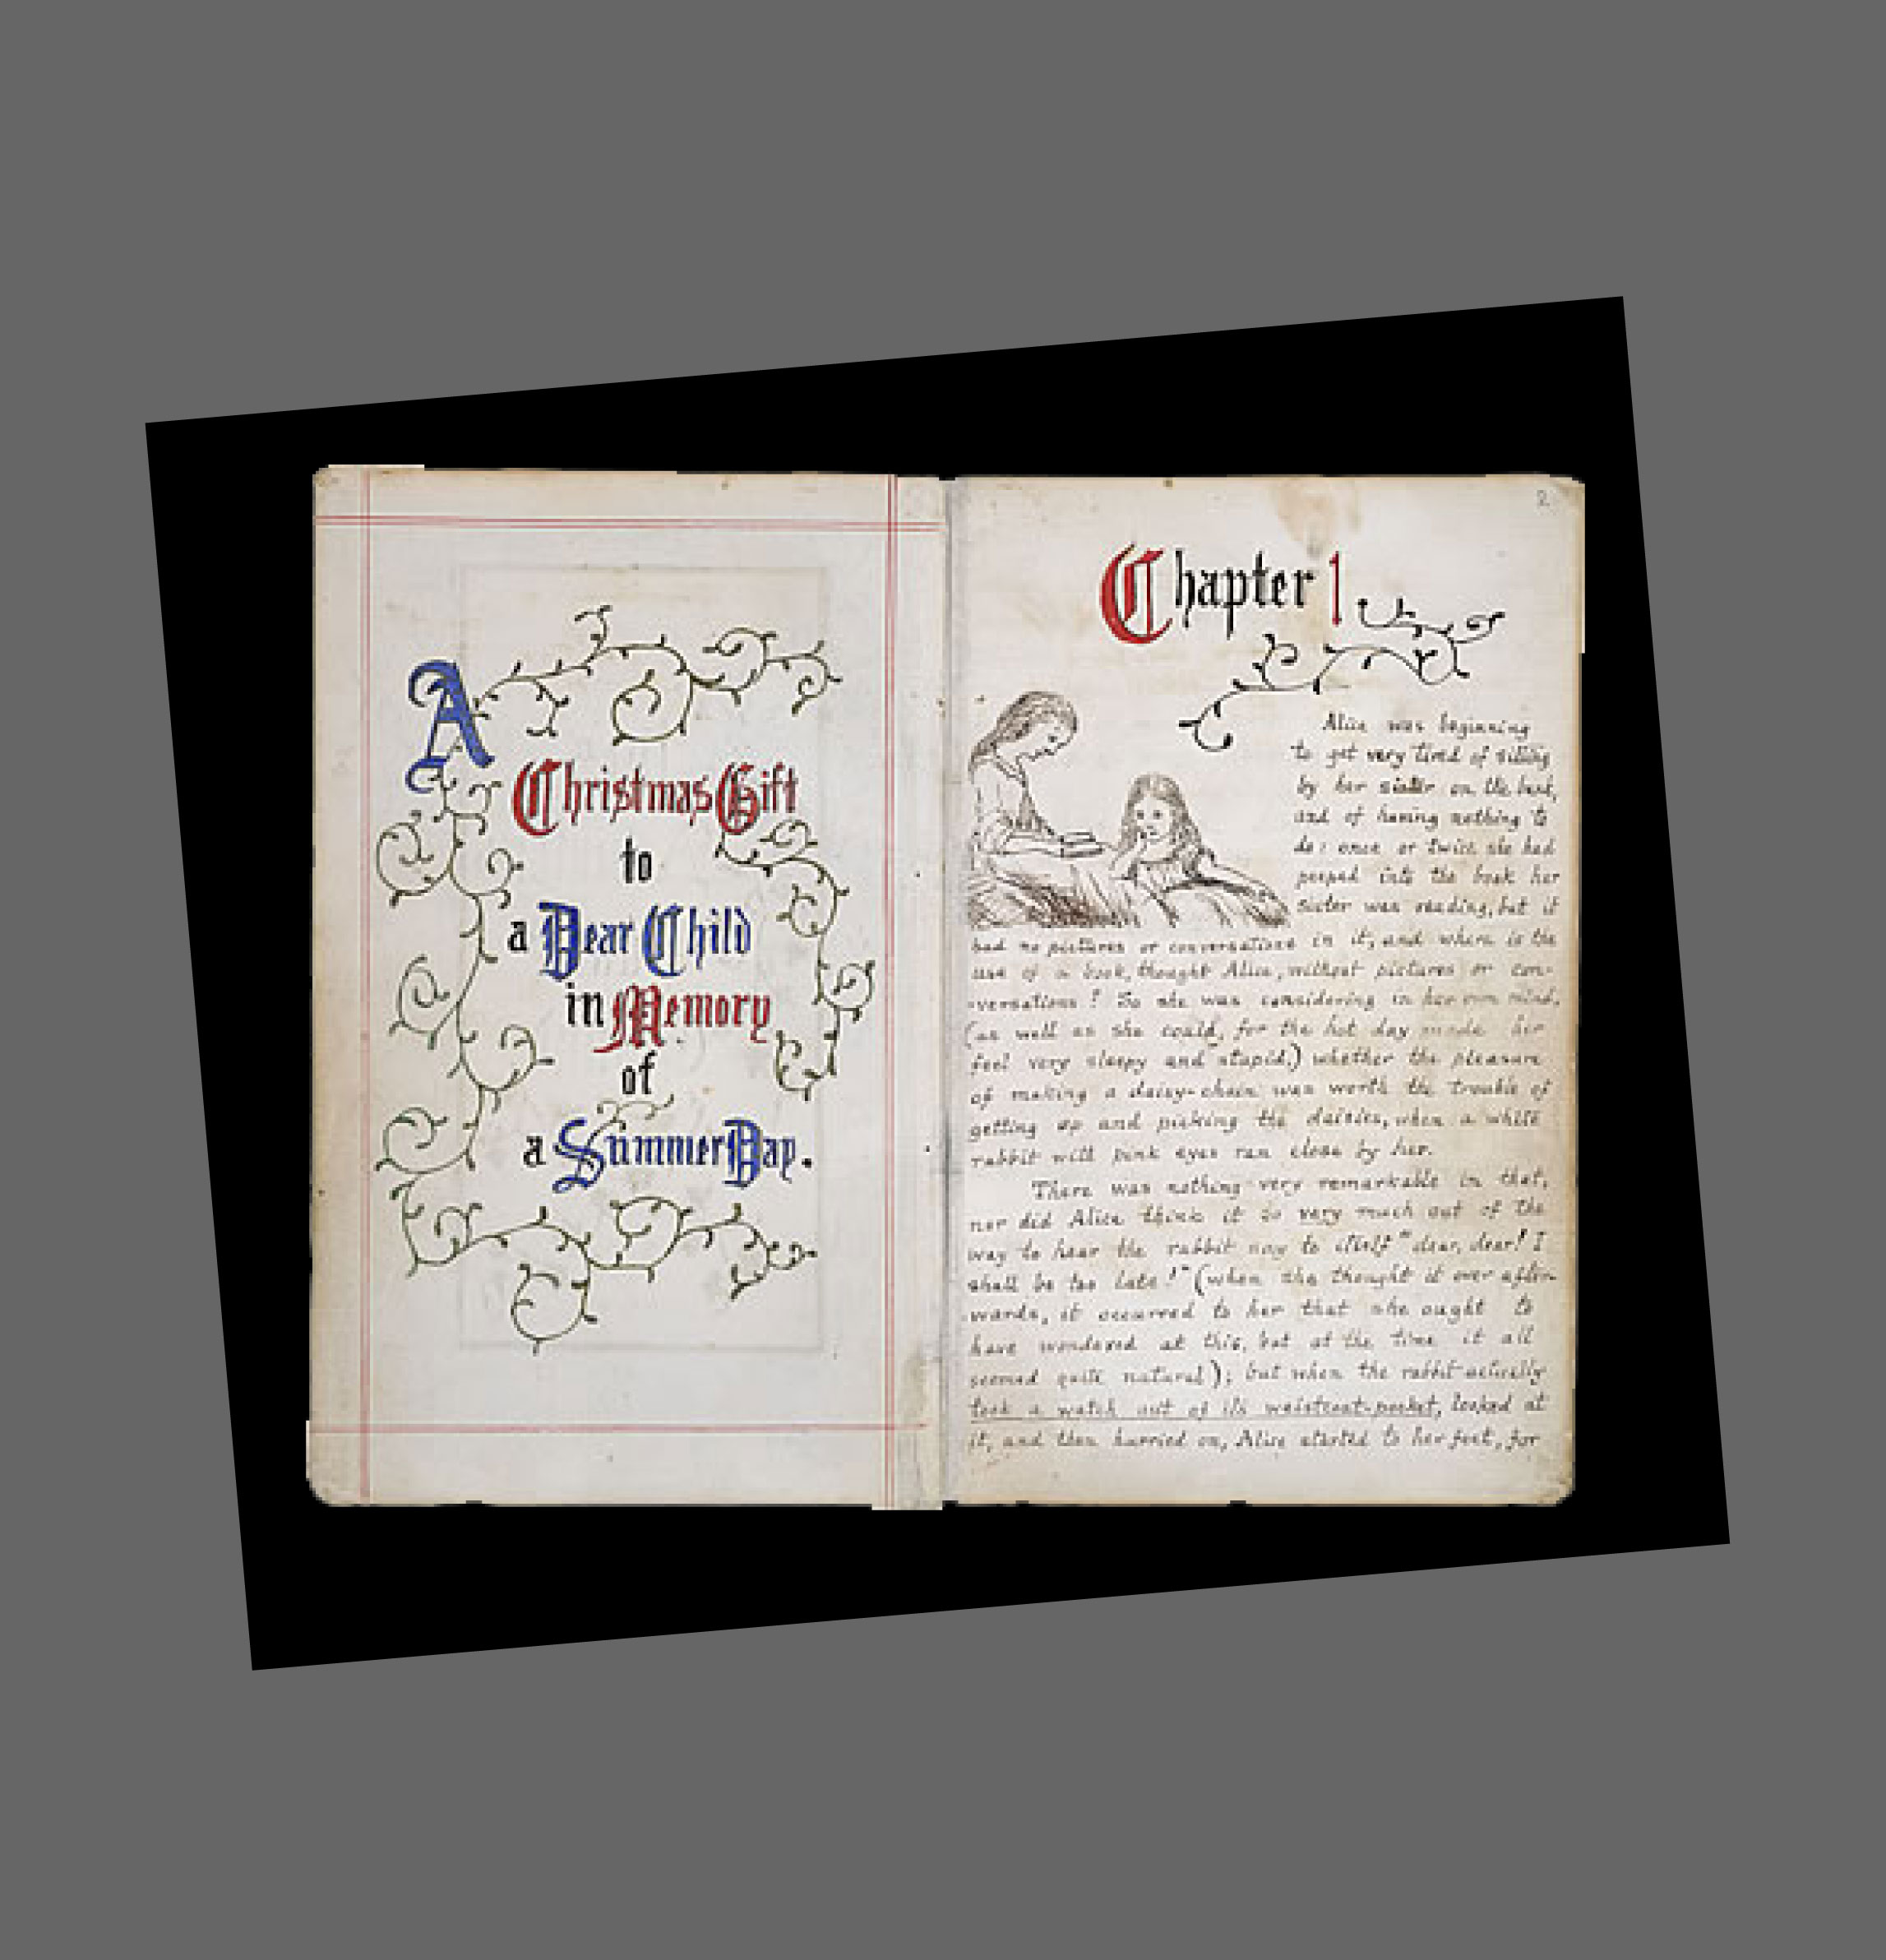 A
Christmas Gift
to
a Dear Child
in Memory
of
a Summer Day.
2
Chapter 1
Alice was beginning
to get very tired of sitting
by her sister on the bank,
and of having nothing to
do: once or twice she had
peeped into the book her
sister was reading, but it
had no pictures or conversations in it, and where is the
use of a book, thought Alice, without pictures or con-
-versations? So she was considering in her own mind,
(as well as she could, for the hot day made her
feel very sleepy and stupid,) whether the pleasure
of making a daisy-chain was worth the trouble of
getting up and picking the daisies, when a white
rabbit with pink eyes ran close by her.
There was nothing very remarkable in that,
nor did Alice think it so very much out of the
way to hear the rabbit say to itself "dear, dear! I
shall be too late!" (when she thought it over after-
-wards, it occurred to her that she ought to
have wondered at this, but at the time it all
seemed quite natural); but when the rabbit actually
took a watch out of its waistcoat-pocket, looked at
it, and then hurried on, Alice started to her feet, for